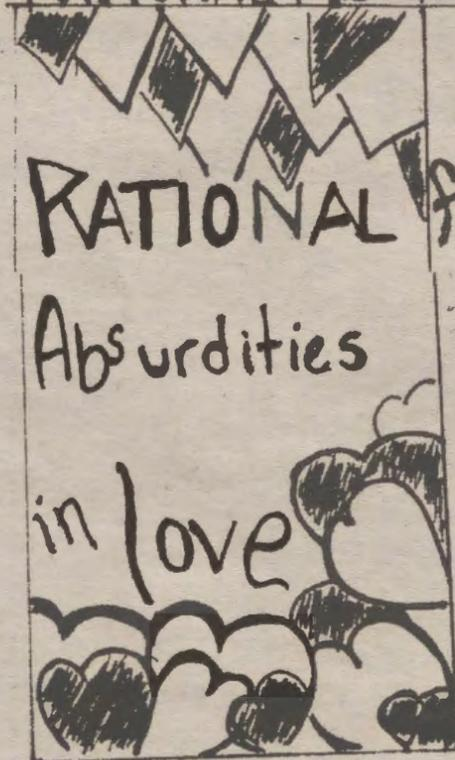 RATIONAL
Absurdities
in love